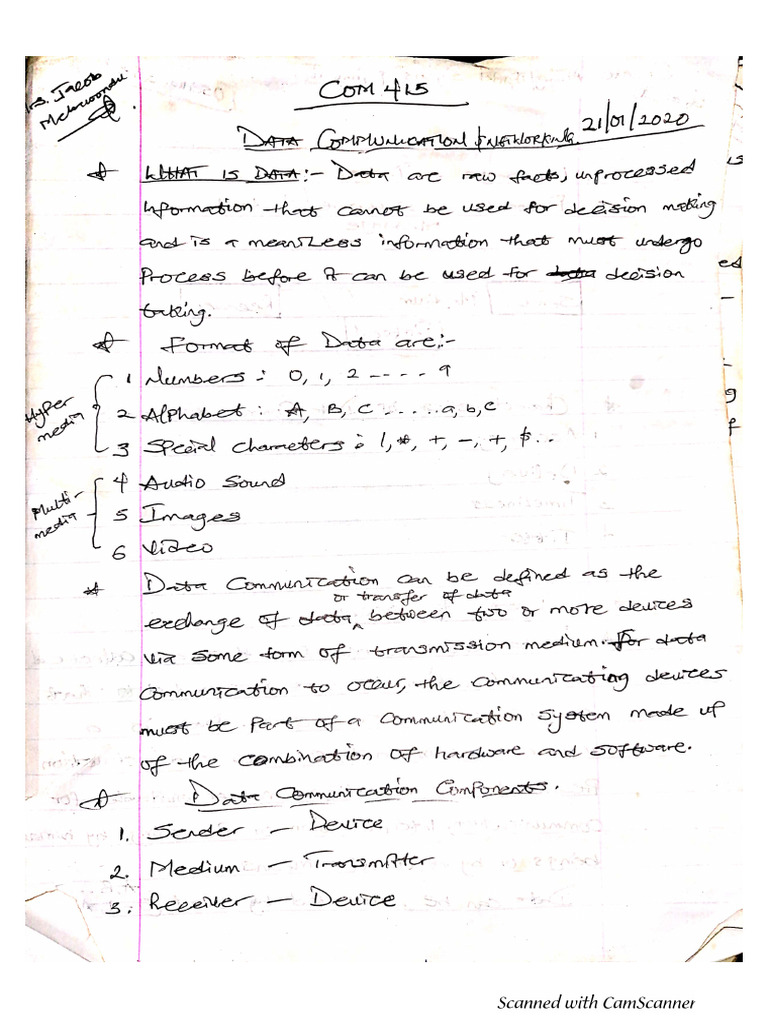 Jacob
COM 415
21/01/2020
DATA COMMUNICATION & NETWORKING.
WHAT IS DATA:- Data are raw facts, unprocessed
information that cannot be used for decision making
and is a meanless information that must undergo
Process before it can be used for data decision
taking.
Format of Data are:-
Hyper media
1 Numbers: 0, 1, 2 ---- 9
2 Alphabet: A, B, C .....a, b, c
3 Special characters: 1, *, +, -, +, $..
Multi-media
4 Audio Sound
5 Images
6 Video
Data Communication can be defined as the
or transfer of data
exchange of data ^ between two or more devices
via some form of transmission medium. For data
communication to occur, the communicating devices
must be part of a communication system made up
of the combination of hardware and software.
Data Communication Components.
1. Sender — Device
2. Medium — Transmitter
3. Receiver — Device
Scanned with CamScanner